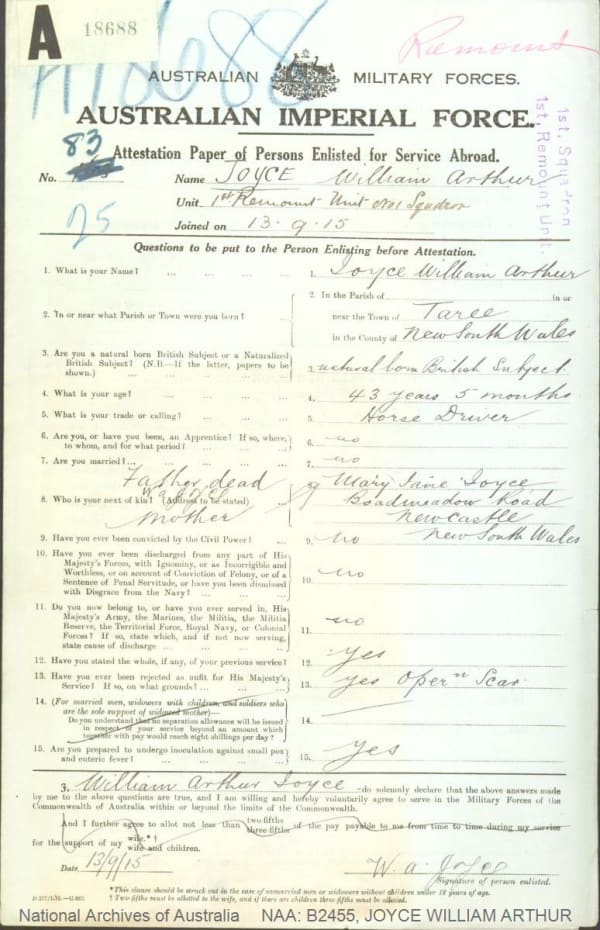 A
18688
A18688
Remount
AUSTRALIAN MILITARY FORCES.
AUSTRALIAN IMPERIAL FORCE.
Attestation Paper of Persons Enlisted for Service Abroad.
83
No. Name JOYCE William Arthur
Unit 1st Remount Unit No1 Squadron
25
Joined on 13.9.15
1st, Squadron
1st, Remount Unit.
Questions to be put to the Person Enlisting before Attestation.
1. What is your Name? ... ... ... ... 1. Joyce William Arthur
2. In or near what Parish or Town were you born? ...
2. In the Parish of in or
near the Town of Taree
in the County of New South Wales
3. Are you a natural born British Subject or a Naturalized
British Subject? (N.B.—If the latter, papers to be
shown.) ... 3. natural born British Subject
4. What is your age? ... 4. 43 years 5 months
5. What is your trade or calling? ... 5. Horse Driver
6. Are you, or have you been, an Apprentice? If so, where,
to whom, and for what period? ... 6. no
7. Are you married? ... 7. no
Father dead
8. Who is your next of kin? (Address to be stated)
mother
8 Mary Jane Joyce
Boadmeadow Road
Newcastle
New South Wales
9. Have you ever been convicted by the Civil Power? ... 9. no
10. Have you ever been discharged from any part of His
Majesty's Forces, with Ignominy, or as Incorrigible and
Worthless, or on account of Conviction of Felony, or of a
Sentence of Penal Servitude, or have you been dismissed
with Disgrace from the Navy? ... 10. no
11. Do you now belong to, or have you ever served in, His
Majesty's Army, the Marines, the Militia, the Militia
Reserve, the Territorial Force, Royal Navy, or Colonial
Forces? If so, state which, and if not now serving,
state cause of discharge ... 11. no
12. Have you stated the whole, if any, of your previous service? 12. yes
13. Have you ever been rejected as unfit for His Majesty's
Service? If so, on what grounds? ... 13. yes Opern Scar
14. (For married men, widowers with children, and soldiers who
are the sole support of widowed mother)—
Do you understand that no separation allowance will be issued
in respect of your service beyond an amount which
together with pay would reach eight shillings per day? 14.
15. Are you prepared to undergo inoculation against small pox
and enteric fever? ... 15. Yes
I, William Arthur Joyce do solemnly declare that the above answers made
by me to the above questions are true, and I am willing and hereby voluntarily agree to serve in the Military Forces of the
Commonwealth of Australia within or beyond the limits of the Commonwealth.
And I further agree to allot not less than two-fifths three-fifths of the pay payable to me from time to time during my service
for the support of my wife.*† wife and children.
Date 13/9/15 W. A. Joyce
Signature of person enlisted.
*This clause should be struck out in the case of unmarried men or widowers without children under 18 years of age.
† Two-fifths must be allotted to the wife, and if there are children three-fifths must be allotted.
National Archives of Australia NAA: B2455, JOYCE WILLIAM ARTHUR